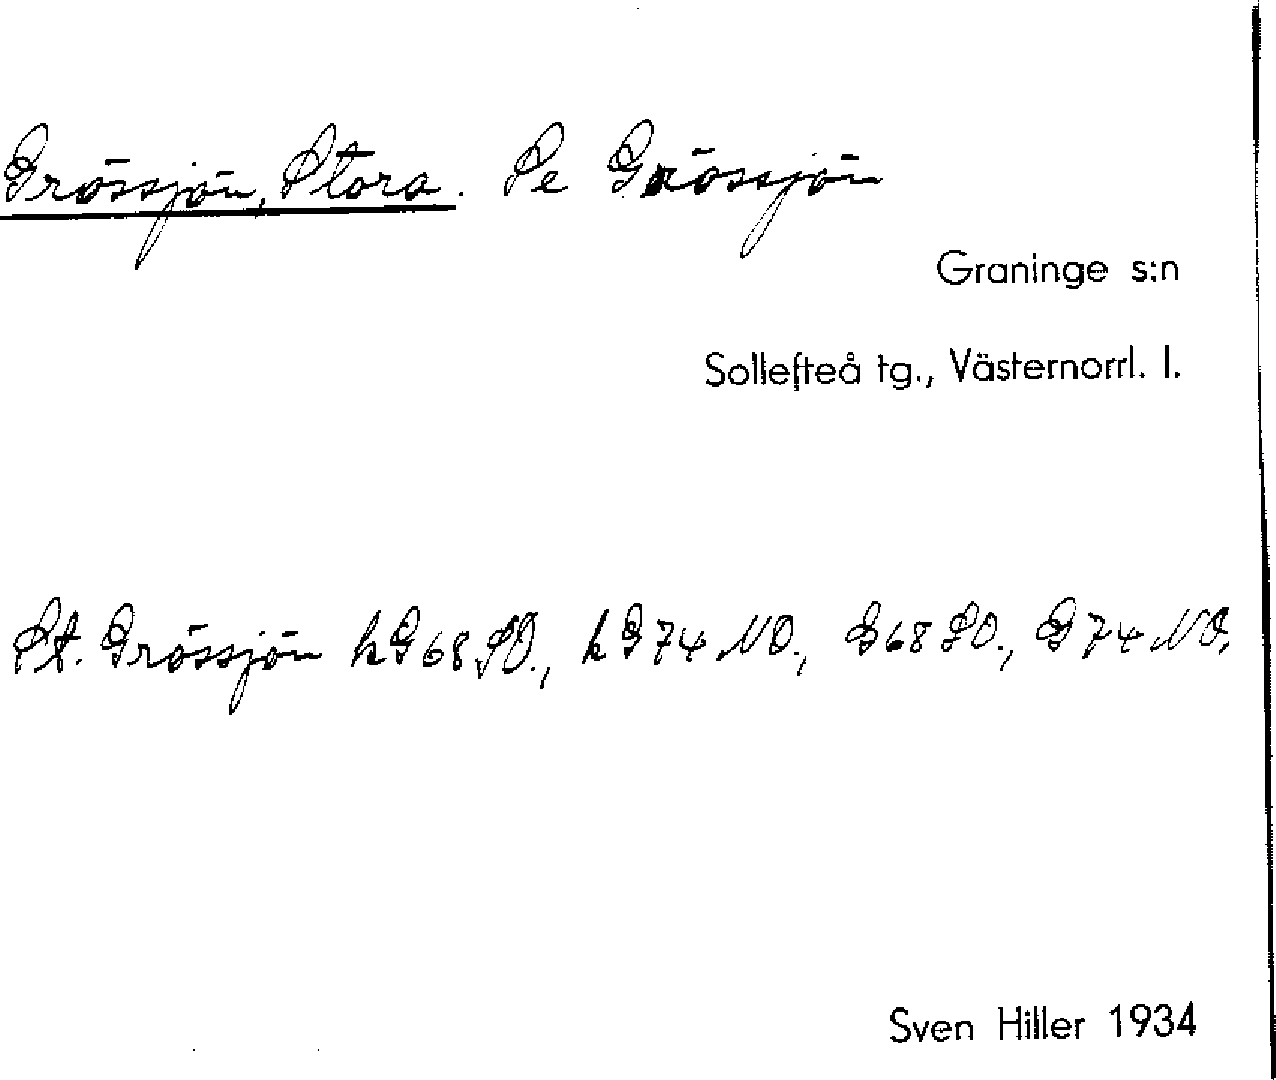 Grössjön, Stora. Se Grössjön
Graninge s:n
Sollefteå tg., Västernorrl. l.
St. Grössjön kG68SO., kG74NO., G68SO., G74NO.
Sven Hiller 1934